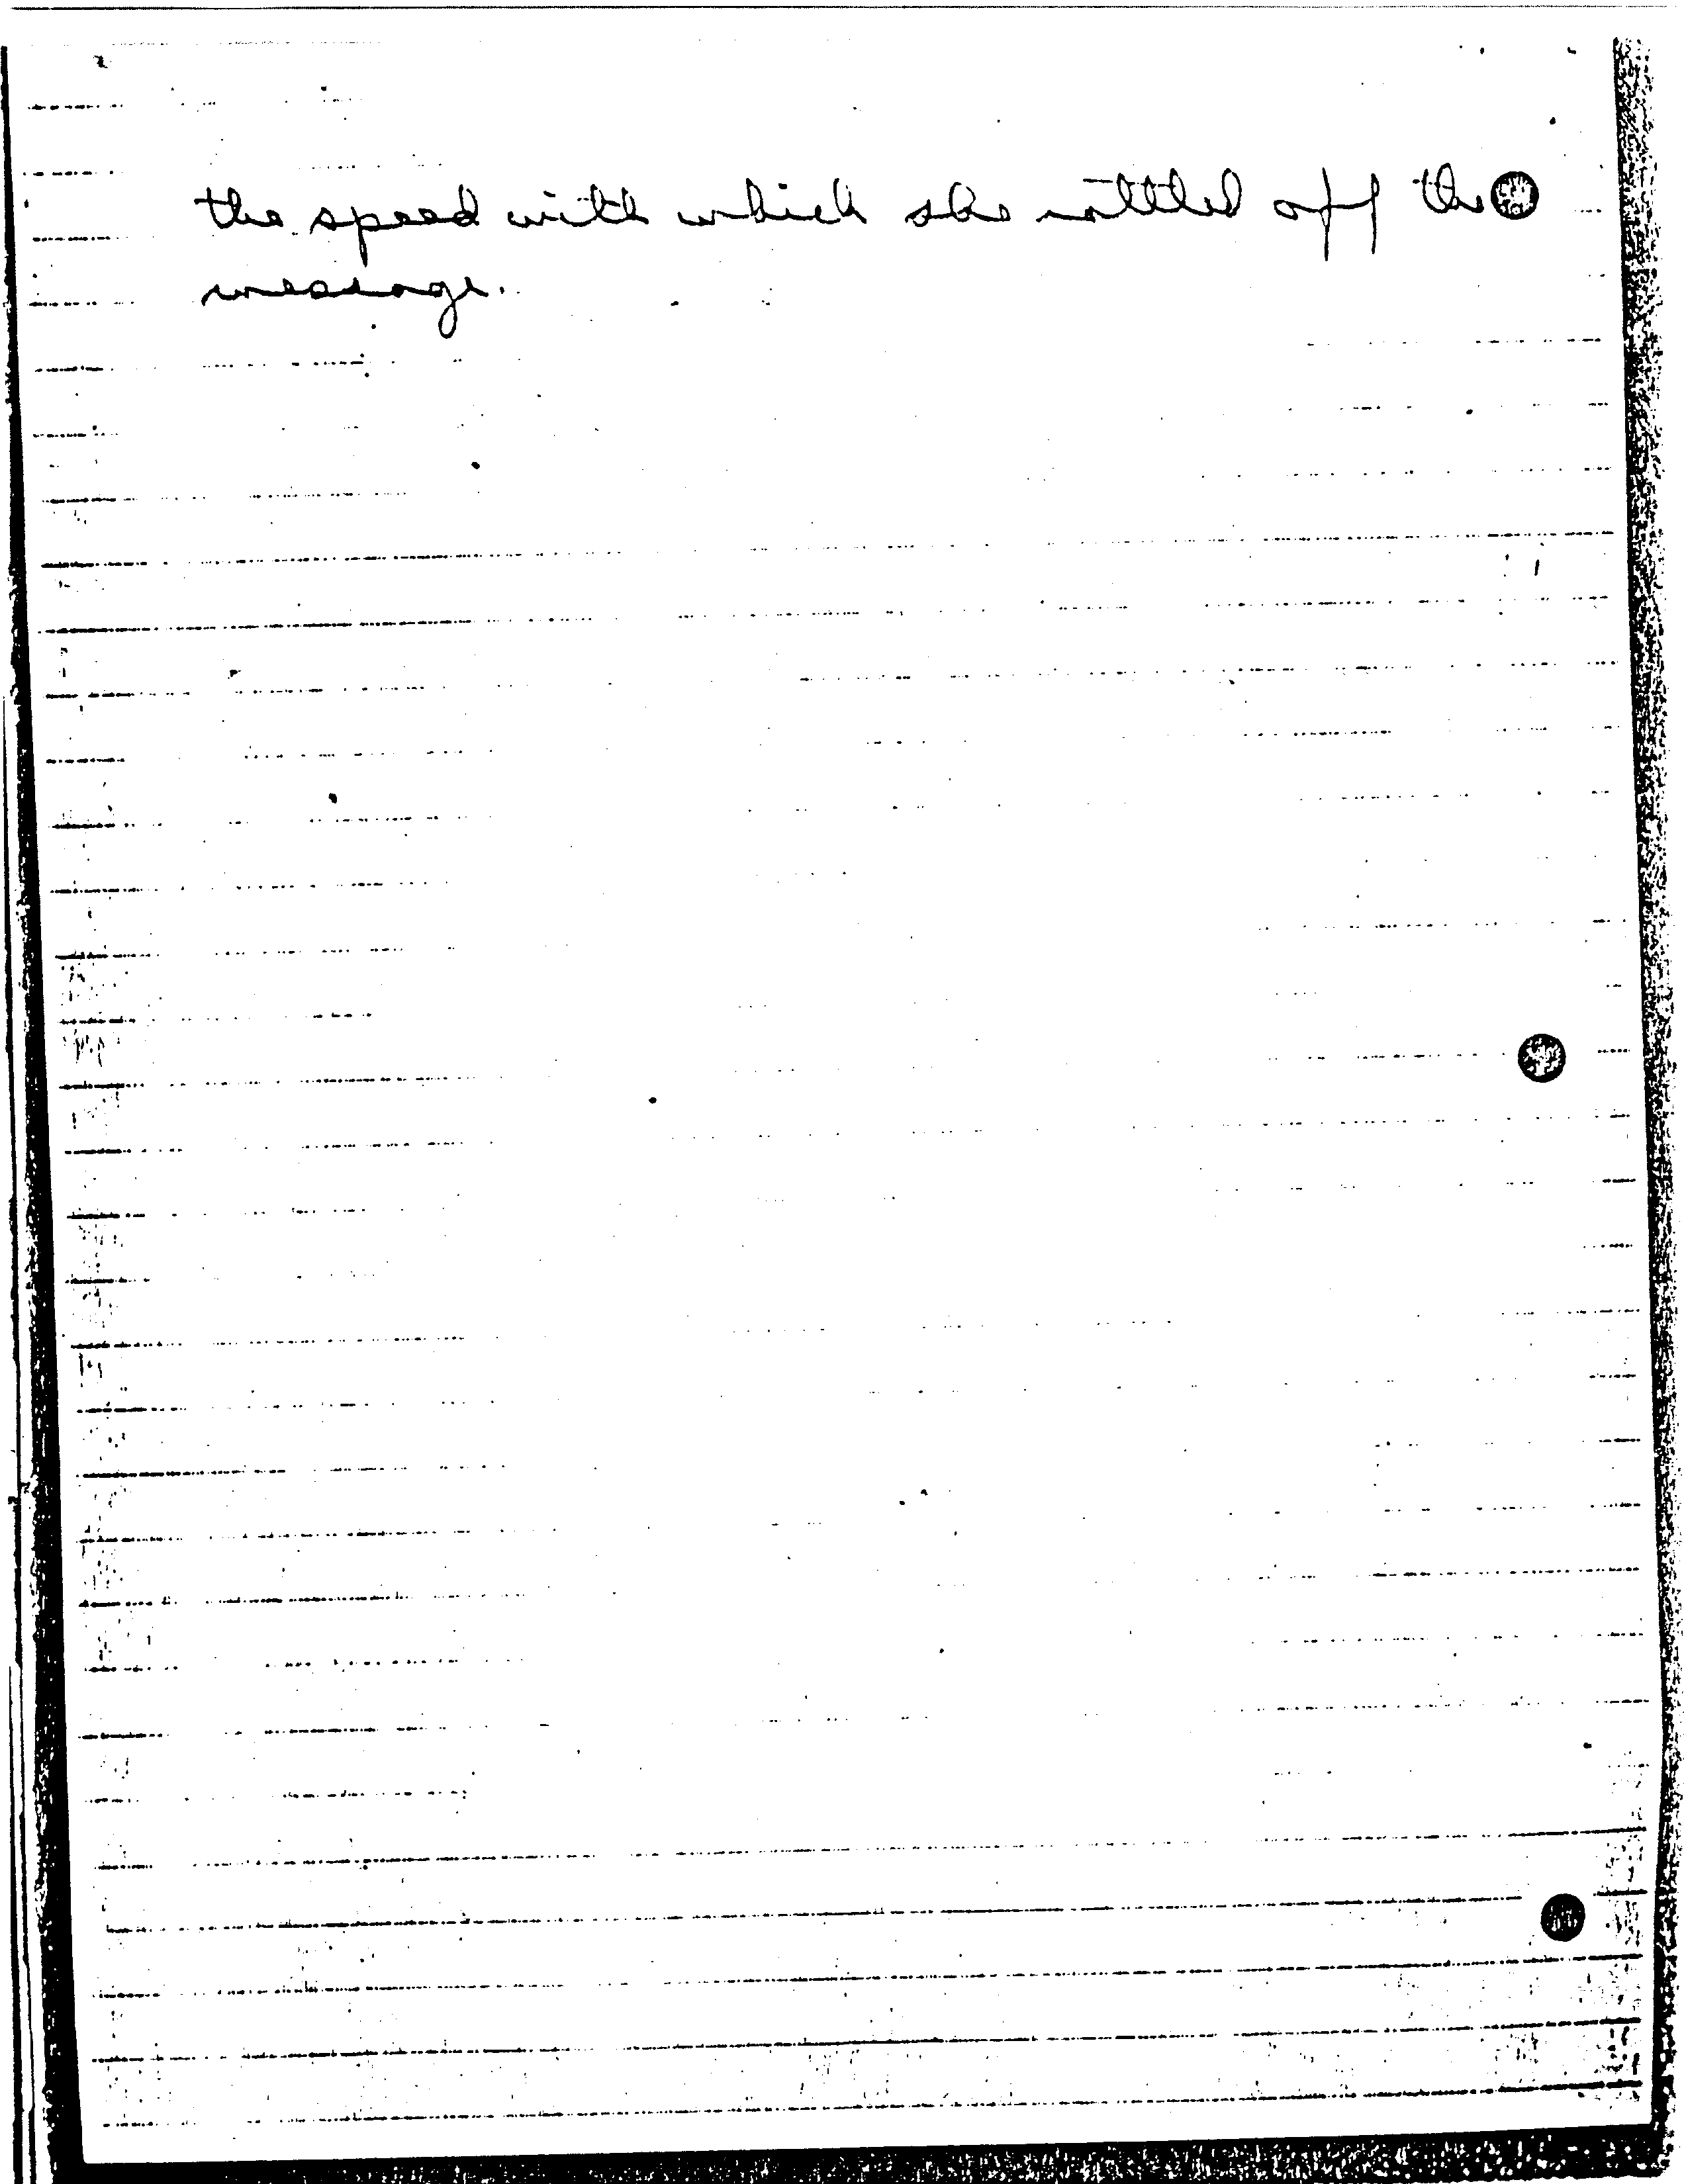 the speed with which she rattled off the
message.